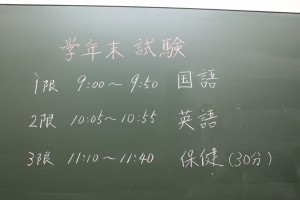 学年末試験
1限 9:00～9:50 国語
2限 10:05～10:55 英語
3限 11:10～11:40 保健(30分)